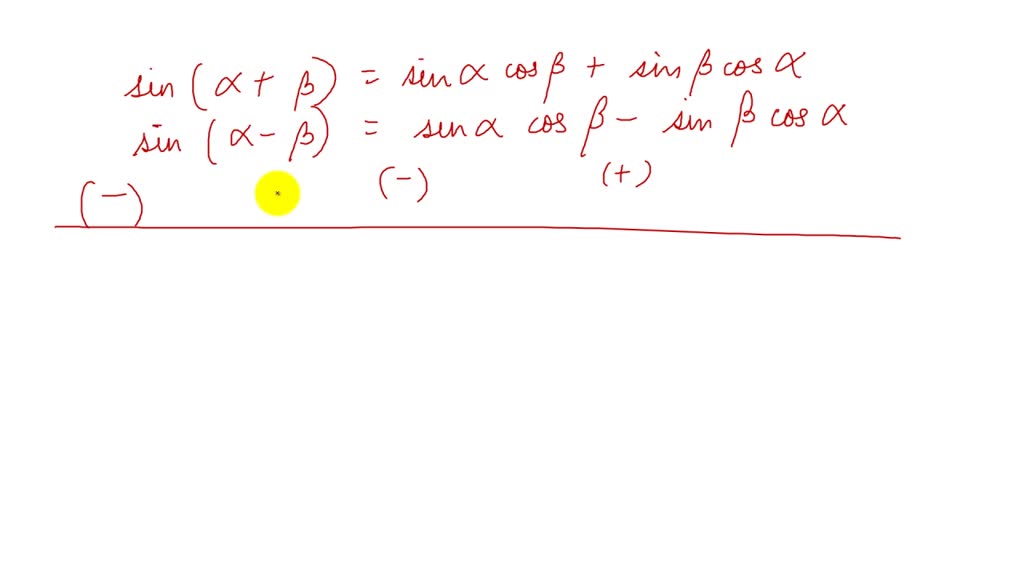 sin (α + β) = sin α cos β + sin β cos α
sin (α - β) = sin α cos β - sin β cos α
(-) (-) (+)